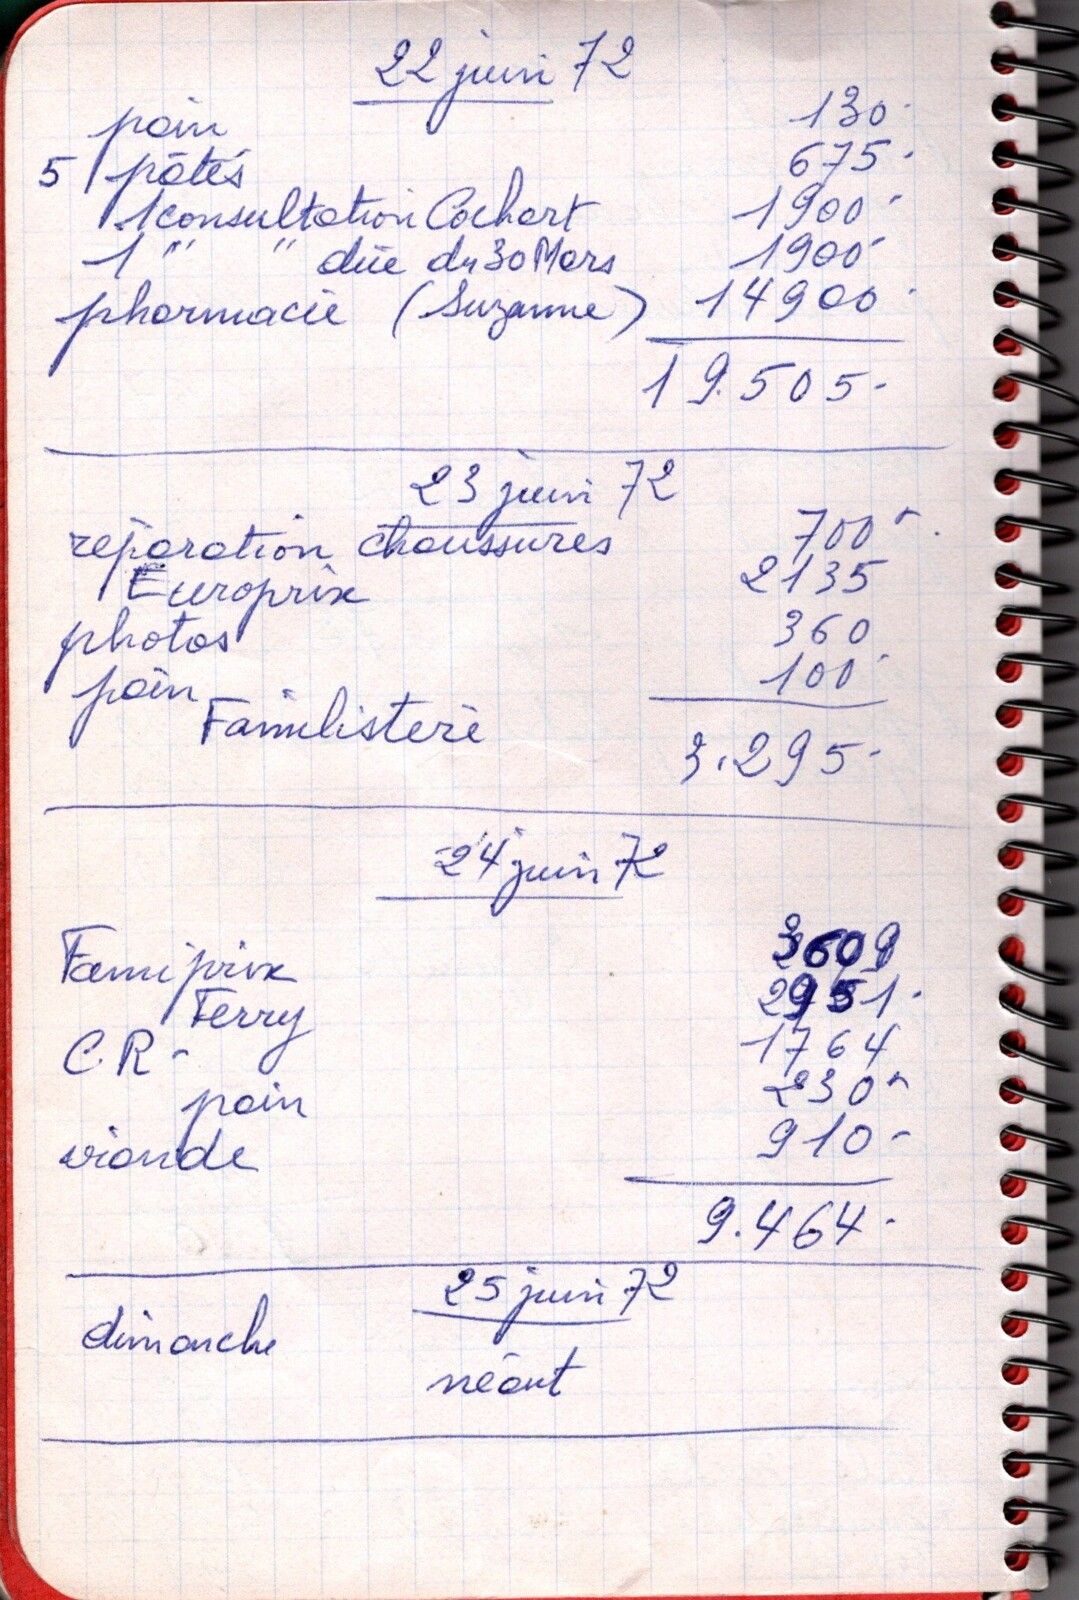 22 juin 72
pain 130.
5 pâtés 675.
1 consultation Cochart 1900-
1 " " dûe du 30 Mars 1900-
pharmacie (Suzanne) 14900.
19.505-
23 juin 72
réparation chaussures 700-
Europrix 2135
photos 360
pain 100-
Familistere
3.295-
24 juin 72
Famiprix 3609
Ferry 2951.
C.R- 1764
pain 230-
viande 910-
9.464.
25 juin 72
dimanche
néant